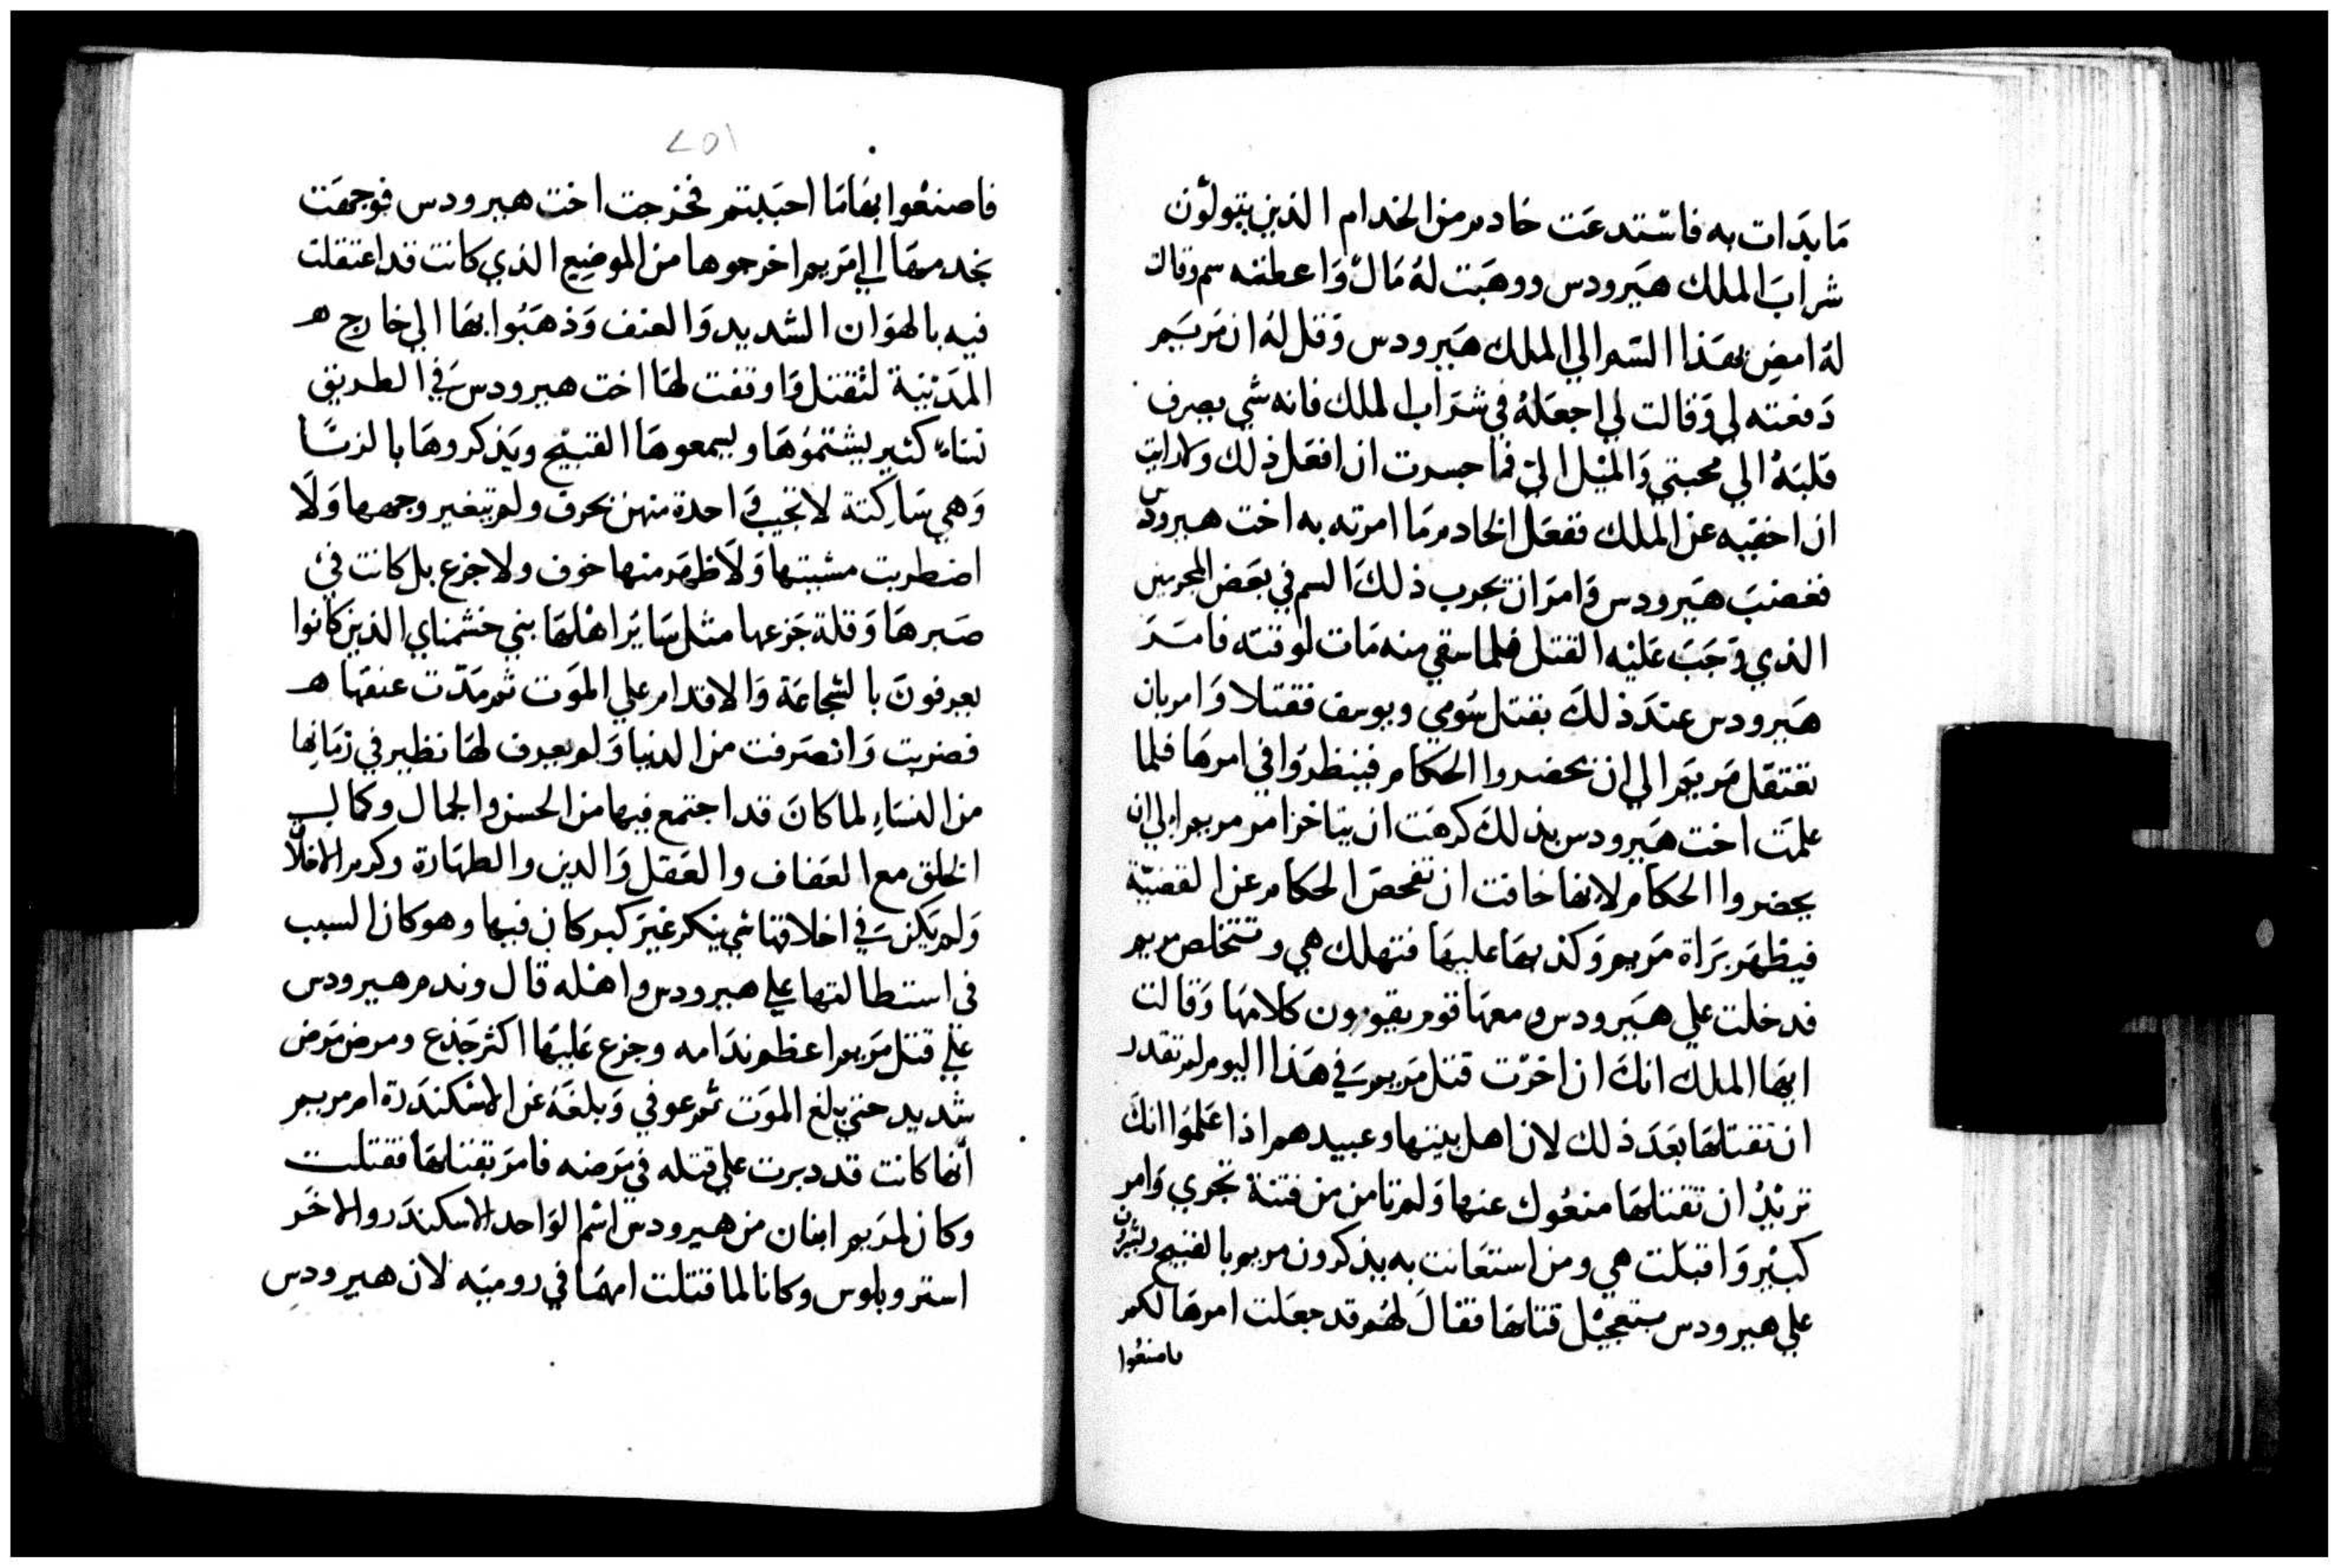 مَا بدَات به فاستدعَت خادم من الخدام الذين يتولوّن
شرابَ الملك هيَرودس ووهبَت لهُ مَالٌ وَاعطته سم وقالت
لهُ امضِ بهَذا السّم الي الملك هيَرودس وَقل لهُ ان مَريَم
دَفعته لي وَقالت لي اجعَلهُ في شرَاب الملك فانه شي يصرف
قلبَهُ الي محبتي وَالميْل اليّ فما جسرت ان افعَل ذلك ولا رايت
ان اخفيه عن الملك ففعَل الخادم مَا امرته به اخت هيرودس
فغضبَ هيَرودس وَامرَ ان يجرب ذلكَ السم في بعَض المجرمين
الذي وَجَبَ عَليْه القتل فلما سقي منه مَات لوقته فامَرَ
هيَرودس عندَ ذلكَ بقتل سُومي ويوسف فقتلا وَامر بان
تعتقل مَريمَ الي ان يحضروا الحكام فينظرُوا في امرهَا فلما
علمَت اخت هيَرودس بذلكَ كرهَت ان يتاخر امر مريم الي ان
يحضروا الحكام لانها خافت ان تفحصَ الحكام عن القضيّة
فيظهَر برَاة مَريم وَكذبهَا عليهَا فتهلك هي وتتخلص مريم
فدخلت علي هيَرودس ومعهَا قوم يقيمون كلامهَا وَقالت
ايهَا الملك انكَ ان اخّرت قتل مَريم في هَذا اليوم لم تقدر
ان تقتلهَا بعَدَ ذلك لان اهل بيتها وعبيدهم اذا عَلمُوا انكَ
تريْدُ ان تقتلهَا منعُوك عنها وَلم تامن من فتنة تجري وَامر
كبيْر وَاقبَلت هي ومن استعَانت به يذكرون مريم بالقبيح ويشيرُون
علي هيرودس بتعجيْل قتلهَا فقالَ لهُم قد جعَلت امرهَا لكم
فاصنعُوا
٢٥١
فاصنعْوا بهَا مَا احبَبتم فخرجت اخت هيرودس فوجهَت
بخدمهَا الي مَريم اخرجوها من الموضِع الذي كانت قد اعتقلت
فيه بالهوَان الشديد وَالعنف وَذهَبُوا بهَا الي خارج هـ
المَديْنة لتقتل وَاوقفت لهَا اخت هيرودس في الطريق
نسَاء كثير يشتمُوهَا ويسمعوهَا القبيْح ويَذكروهَا بالزنَا
وَهي سَاكتة لا تجيب وَاحدة منهن بحرف ولم يتغير وجهها وَلَا
اضطربت مشيتها وَلَا ظهَر منها خوف ولا جزع بل كانت في
صَبرهَا وَقلة جَزعها مثل سَايَر اهْلهَا بني حشمناي الذين كانوا
يعرفونَ بالشجاعَة وَالاقدام علي الموَت ثم مَدّت عنقهَا هـ
فضربت وَانصَرفت من الدنيا وَلم يعرف لهَا نظير في زمَانِها
من النسَاء لما كانَ قد اجتمع فيها من الحسن والجمال وكمال
الخلق مع العَفاف والعَقل وَالدين والطهَارة وكرم الاخلاَّ
وَلم يَكن في اخلاقهَا شي ينكر غيَر كبر كان فيها وهو كان السبب
في استطالتها علي هيرودس واهْله قال وندم هيرودس
علي قتل مَريم اعظم ندَامه وجزع عَليهَا اكثر جَذع ومرض مَرَض
شديد حتي بلغ الموَت ثم عوفي وَبلغَهُ عن الاسْكندَرة ام مريم
انّها كانت قد دبرت علي قتله في مَرَضه فامرَ بقتلهَا فقتلت
وكان لمرَيم ابنان من هيرودس اسْم الوَاحد الاسكندَر والاخَر
استروبلوس وكانا لما قتلت امهَما في روميَه لان هيرودس